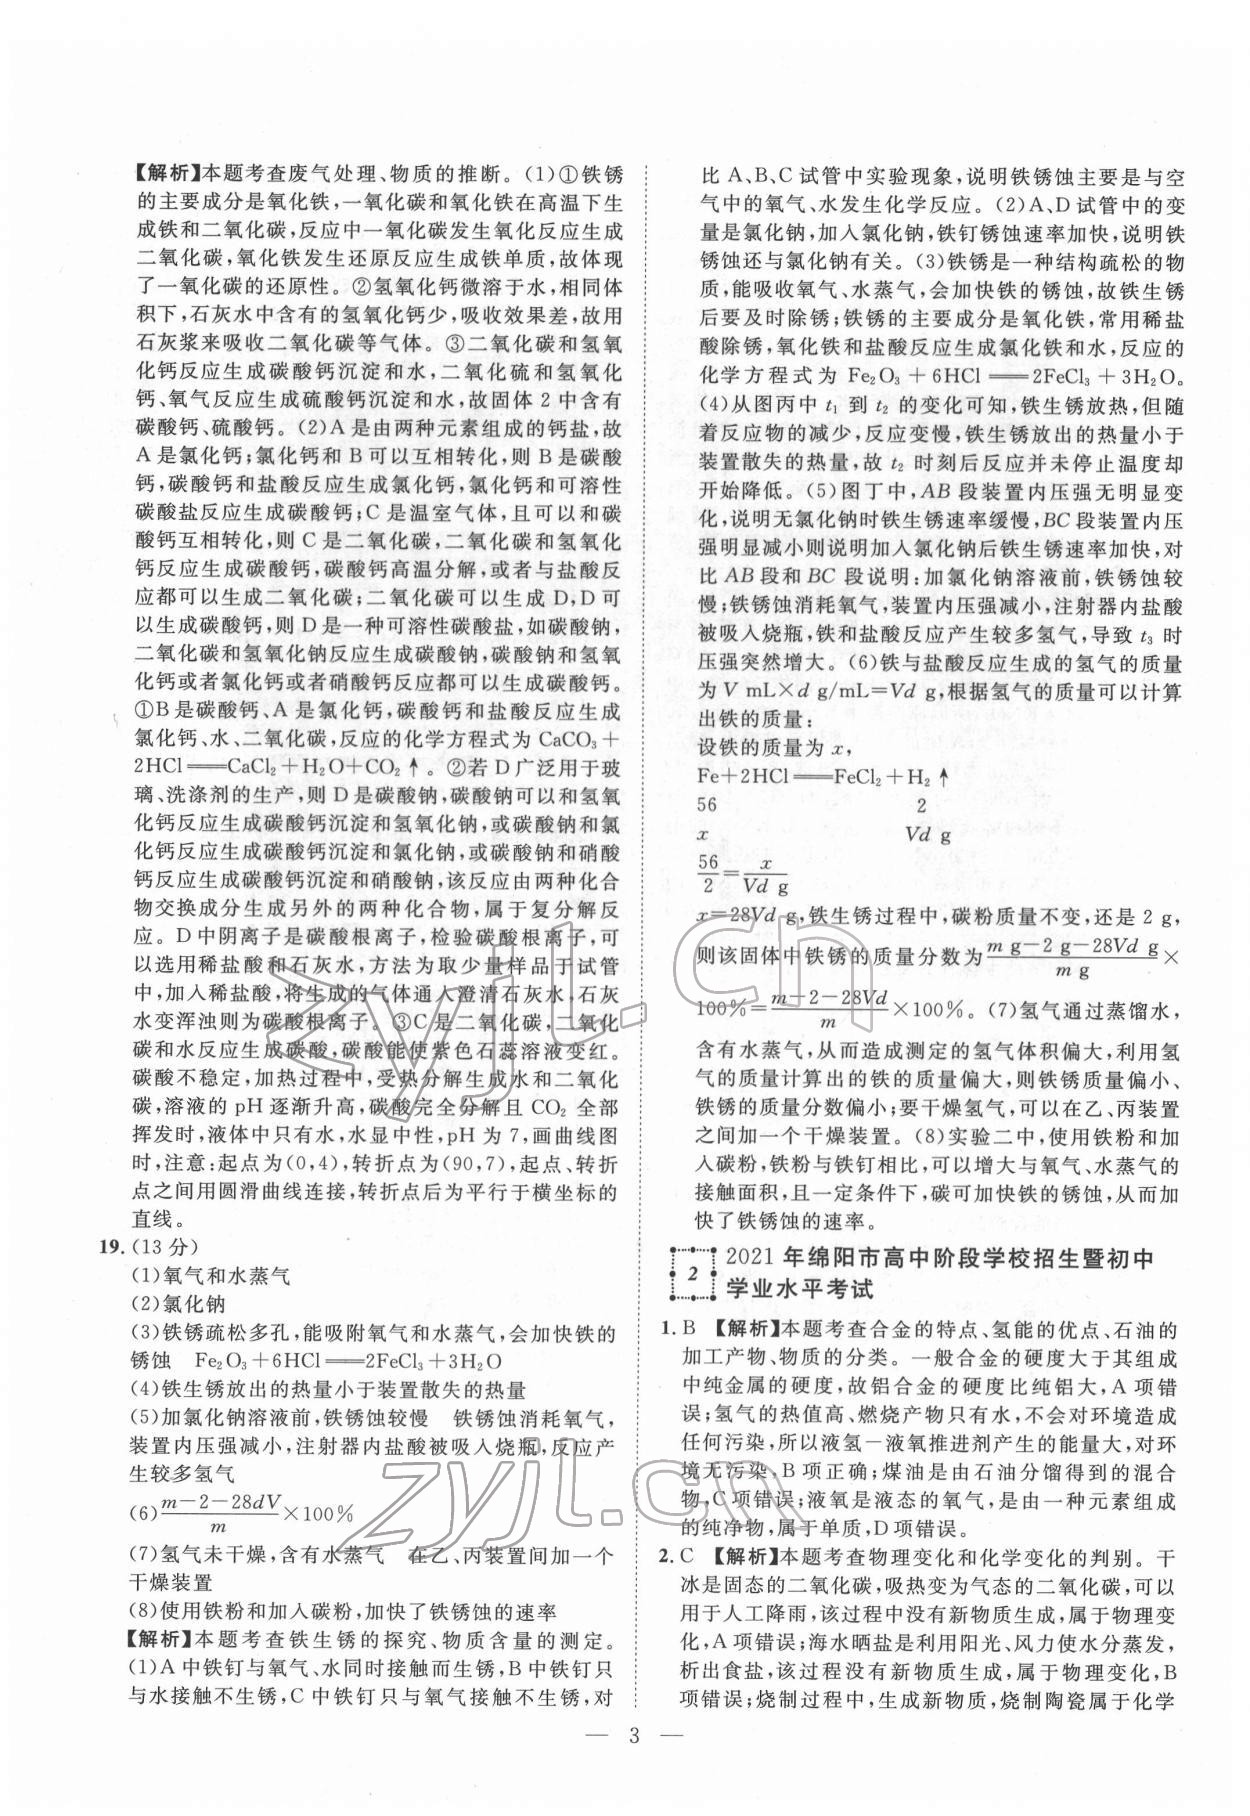 【解析】本题考查废气处理、物质的推断。(1)①铁锈
的主要成分是氧化铁,一氧化碳和氧化铁在高温下生
成铁和二氧化碳,反应中一氧化碳发生氧化反应生成
二氧化碳,氧化铁发生还原反应生成铁单质,故体现
了一氧化碳的还原性。②氢氧化钙微溶于水,相同体
积下,石灰水中含有的氢氧化钙少,吸收效果差,故用
石灰浆来吸收二氧化碳等气体。③二氧化碳和氢氧
化钙反应生成碳酸钙沉淀和水,二氧化硫和氢氧化
钙、氧气反应生成硫酸钙沉淀和水,故固体2中含有
碳酸钙、硫酸钙。(2)A是由两种元素组成的钙盐,故
A是氯化钙;氯化钙和B可以互相转化,则B是碳酸
钙,碳酸钙和盐酸反应生成氯化钙,氯化钙和可溶性
碳酸盐反应生成碳酸钙;C是温室气体,且可以和碳
酸钙互相转化,则C是二氧化碳,二氧化碳和氢氧化
钙反应生成碳酸钙,碳酸钙高温分解,或者与盐酸反
应都可以生成二氧化碳;二氧化碳可以生成D,D可
以生成碳酸钙,则D是一种可溶性碳酸盐,如碳酸钠,
二氧化碳和氢氧化钠反应生成碳酸钠,碳酸钠和氢氧
化钙或者氯化钙或者硝酸钙反应都可以生成碳酸钙。
①B是碳酸钙、A是氯化钙,碳酸钙和盐酸反应生成
氯化钙、水、二氧化碳,反应的化学方程式为CaCO₃+
2HCl══CaCl₂+H₂O+CO₂↑。②若D广泛用于玻
璃、洗涤剂的生产,则D是碳酸钠,碳酸钠可以和氢氧
化钙反应生成碳酸钙沉淀和氢氧化钠,或碳酸钠和氯
化钙反应生成碳酸钙沉淀和氯化钠,或碳酸钠和硝酸
钙反应生成碳酸钙沉淀和硝酸钠,该反应由两种化合
物交换成分生成另外的两种化合物,属于复分解反
应。D中阴离子是碳酸根离子,检验碳酸根离子,可
以选用稀盐酸和石灰水,方法为取少量样品于试管
中,加入稀盐酸,将生成的气体通入澄清石灰水,石灰
水变浑浊则为碳酸根离子。③C是二氧化碳,二氧化
碳和水反应生成碳酸,碳酸能使紫色石蕊溶液变红。
碳酸不稳定,加热过程中,受热分解生成水和二氧化
碳,溶液的pH逐渐升高,碳酸完全分解且CO₂全部
挥发时,液体中只有水,水显中性,pH为7,画曲线图
时,注意:起点为(0,4),转折点为(90,7),起点、转折
点之间用圆滑曲线连接,转折点后为平行于横坐标的
直线。
19.(13分)
(1)氧气和水蒸气
(2)氯化钠
(3)铁锈疏松多孔,能吸附氧气和水蒸气,会加快铁的
锈蚀 Fe₂O₃+6HCl══2FeCl₃+3H₂O
(4)铁生锈放出的热量小于装置散失的热量
(5)加氯化钠溶液前,铁锈蚀较慢 铁锈蚀消耗氧气,
装置内压强减小,注射器内盐酸被吸入烧瓶,反应产
生较多氢气
(6)(m-2-28dV)/m×100%
(7)氢气未干燥,含有水蒸气 在乙、丙装置间加一个
干燥装置
(8)使用铁粉和加入碳粉,加快了铁锈蚀的速率
【解析】本题考查铁生锈的探究、物质含量的测定。
(1)A中铁钉与氧气、水同时接触而生锈,B中铁钉只
与水接触不生锈,C中铁钉只与氧气接触不生锈,对
比A、B、C试管中实验现象,说明铁锈蚀主要是与空
气中的氧气、水发生化学反应。(2)A、D试管中的变
量是氯化钠,加入氯化钠,铁钉锈蚀速率加快,说明铁
锈蚀还与氯化钠有关。(3)铁锈是一种结构疏松的物
质,能吸收氧气、水蒸气,会加快铁的锈蚀,故铁生锈
后要及时除锈;铁锈的主要成分是氧化铁,常用稀盐
酸除锈,氧化铁和盐酸反应生成氯化铁和水,反应的
化学方程式为Fe₂O₃+6HCl══2FeCl₃+3H₂O。
(4)从图丙中t₁到t₂的变化可知,铁生锈放热,但随
着反应物的减少,反应变慢,铁生锈放出的热量小于
装置散失的热量,故t₂时刻后反应并未停止温度却
开始降低。(5)图丁中,AB段装置内压强无明显变
化,说明无氯化钠时铁生锈速率缓慢,BC段装置内压
强明显减小则说明加入氯化钠后铁生锈速率加快,对
比AB段和BC段说明:加氯化钠溶液前,铁锈蚀较
慢;铁锈蚀消耗氧气,装置内压强减小,注射器内盐酸
被吸入烧瓶,铁和盐酸反应产生较多氢气,导致t₃时
压强突然增大。(6)铁与盐酸反应生成的氢气的质量
为V mL×d g/mL=Vd g,根据氢气的质量可以计算
出铁的质量:
设铁的质量为x,
Fe+2HCl══FeCl₂+H₂↑
56 2
x Vd g
56/2=x/(Vd g)
x=28Vd g,铁生锈过程中,碳粉质量不变,还是2 g,
则该固体中铁锈的质量分数为(m g-2 g-28Vd g)/(m g)×
100%=(m-2-28Vd)/m×100%。(7)氢气通过蒸馏水,
含有水蒸气,从而造成测定的氢气体积偏大,利用氢
气的质量计算出的铁的质量偏大,则铁锈质量偏小、
铁锈的质量分数偏小;要干燥氢气,可以在乙、丙装置
之间加一个干燥装置。(8)实验二中,使用铁粉和加
入碳粉,铁粉与铁钉相比,可以增大与氧气、水蒸气的
接触面积,且一定条件下,碳可加快铁的锈蚀,从而加
快了铁锈蚀的速率。
2 2021年绵阳市高中阶段学校招生暨初中
学业水平考试
1. B 【解析】本题考查合金的特点、氢能的优点、石油的
加工产物、物质的分类。一般合金的硬度大于其组成
中纯金属的硬度,故铝合金的硬度比纯铝大,A项错
误;氢气的热值高、燃烧产物只有水,不会对环境造成
任何污染,所以液氢-液氧推进剂产生的能量大,对环
境无污染,B项正确;煤油是由石油分馏得到的混合
物,C项错误;液氧是液态的氧气,是由一种元素组成
的纯净物,属于单质,D项错误。
2. C 【解析】本题考查物理变化和化学变化的判别。干
冰是固态的二氧化碳,吸热变为气态的二氧化碳,可以
用于人工降雨,该过程中没有新物质生成,属于物理变
化,A项错误;海水晒盐是利用阳光、风力使水分蒸发,
析出食盐,该过程没有新物质生成,属于物理变化,B
项错误;烧制过程中,生成新物质,烧制陶瓷属于化学
— 3 —
zyjl.cn
zyjl.cn